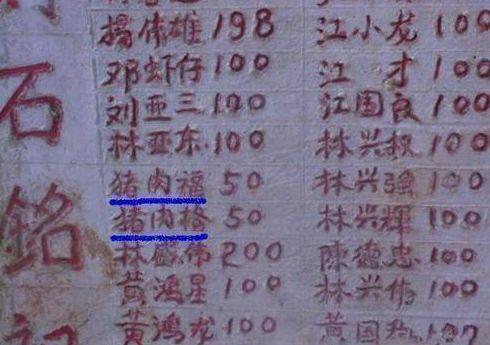 石
銘
揚伟雄 198 江小龙 100
邓虾仔 100 江 才 100
刘亚三 100 江国良 100
林亚东 100 林兴权 100
猪肉福 50 林兴強 100
猪肉格 50 林兴輝 100
林 伟 200 陳德忠 100
黄鸿星 100 林兴伟 100
黄鸿龙 100 黄国